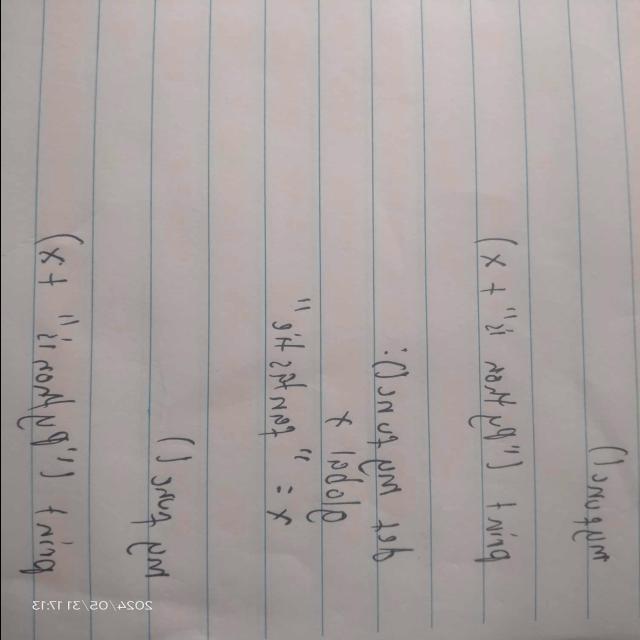 myfunc()
print ("Python is" + x)
def myfunc():
global x
x = "fantastic"
my func ()
print ("Python is" + x)
2024/05/31 17:13